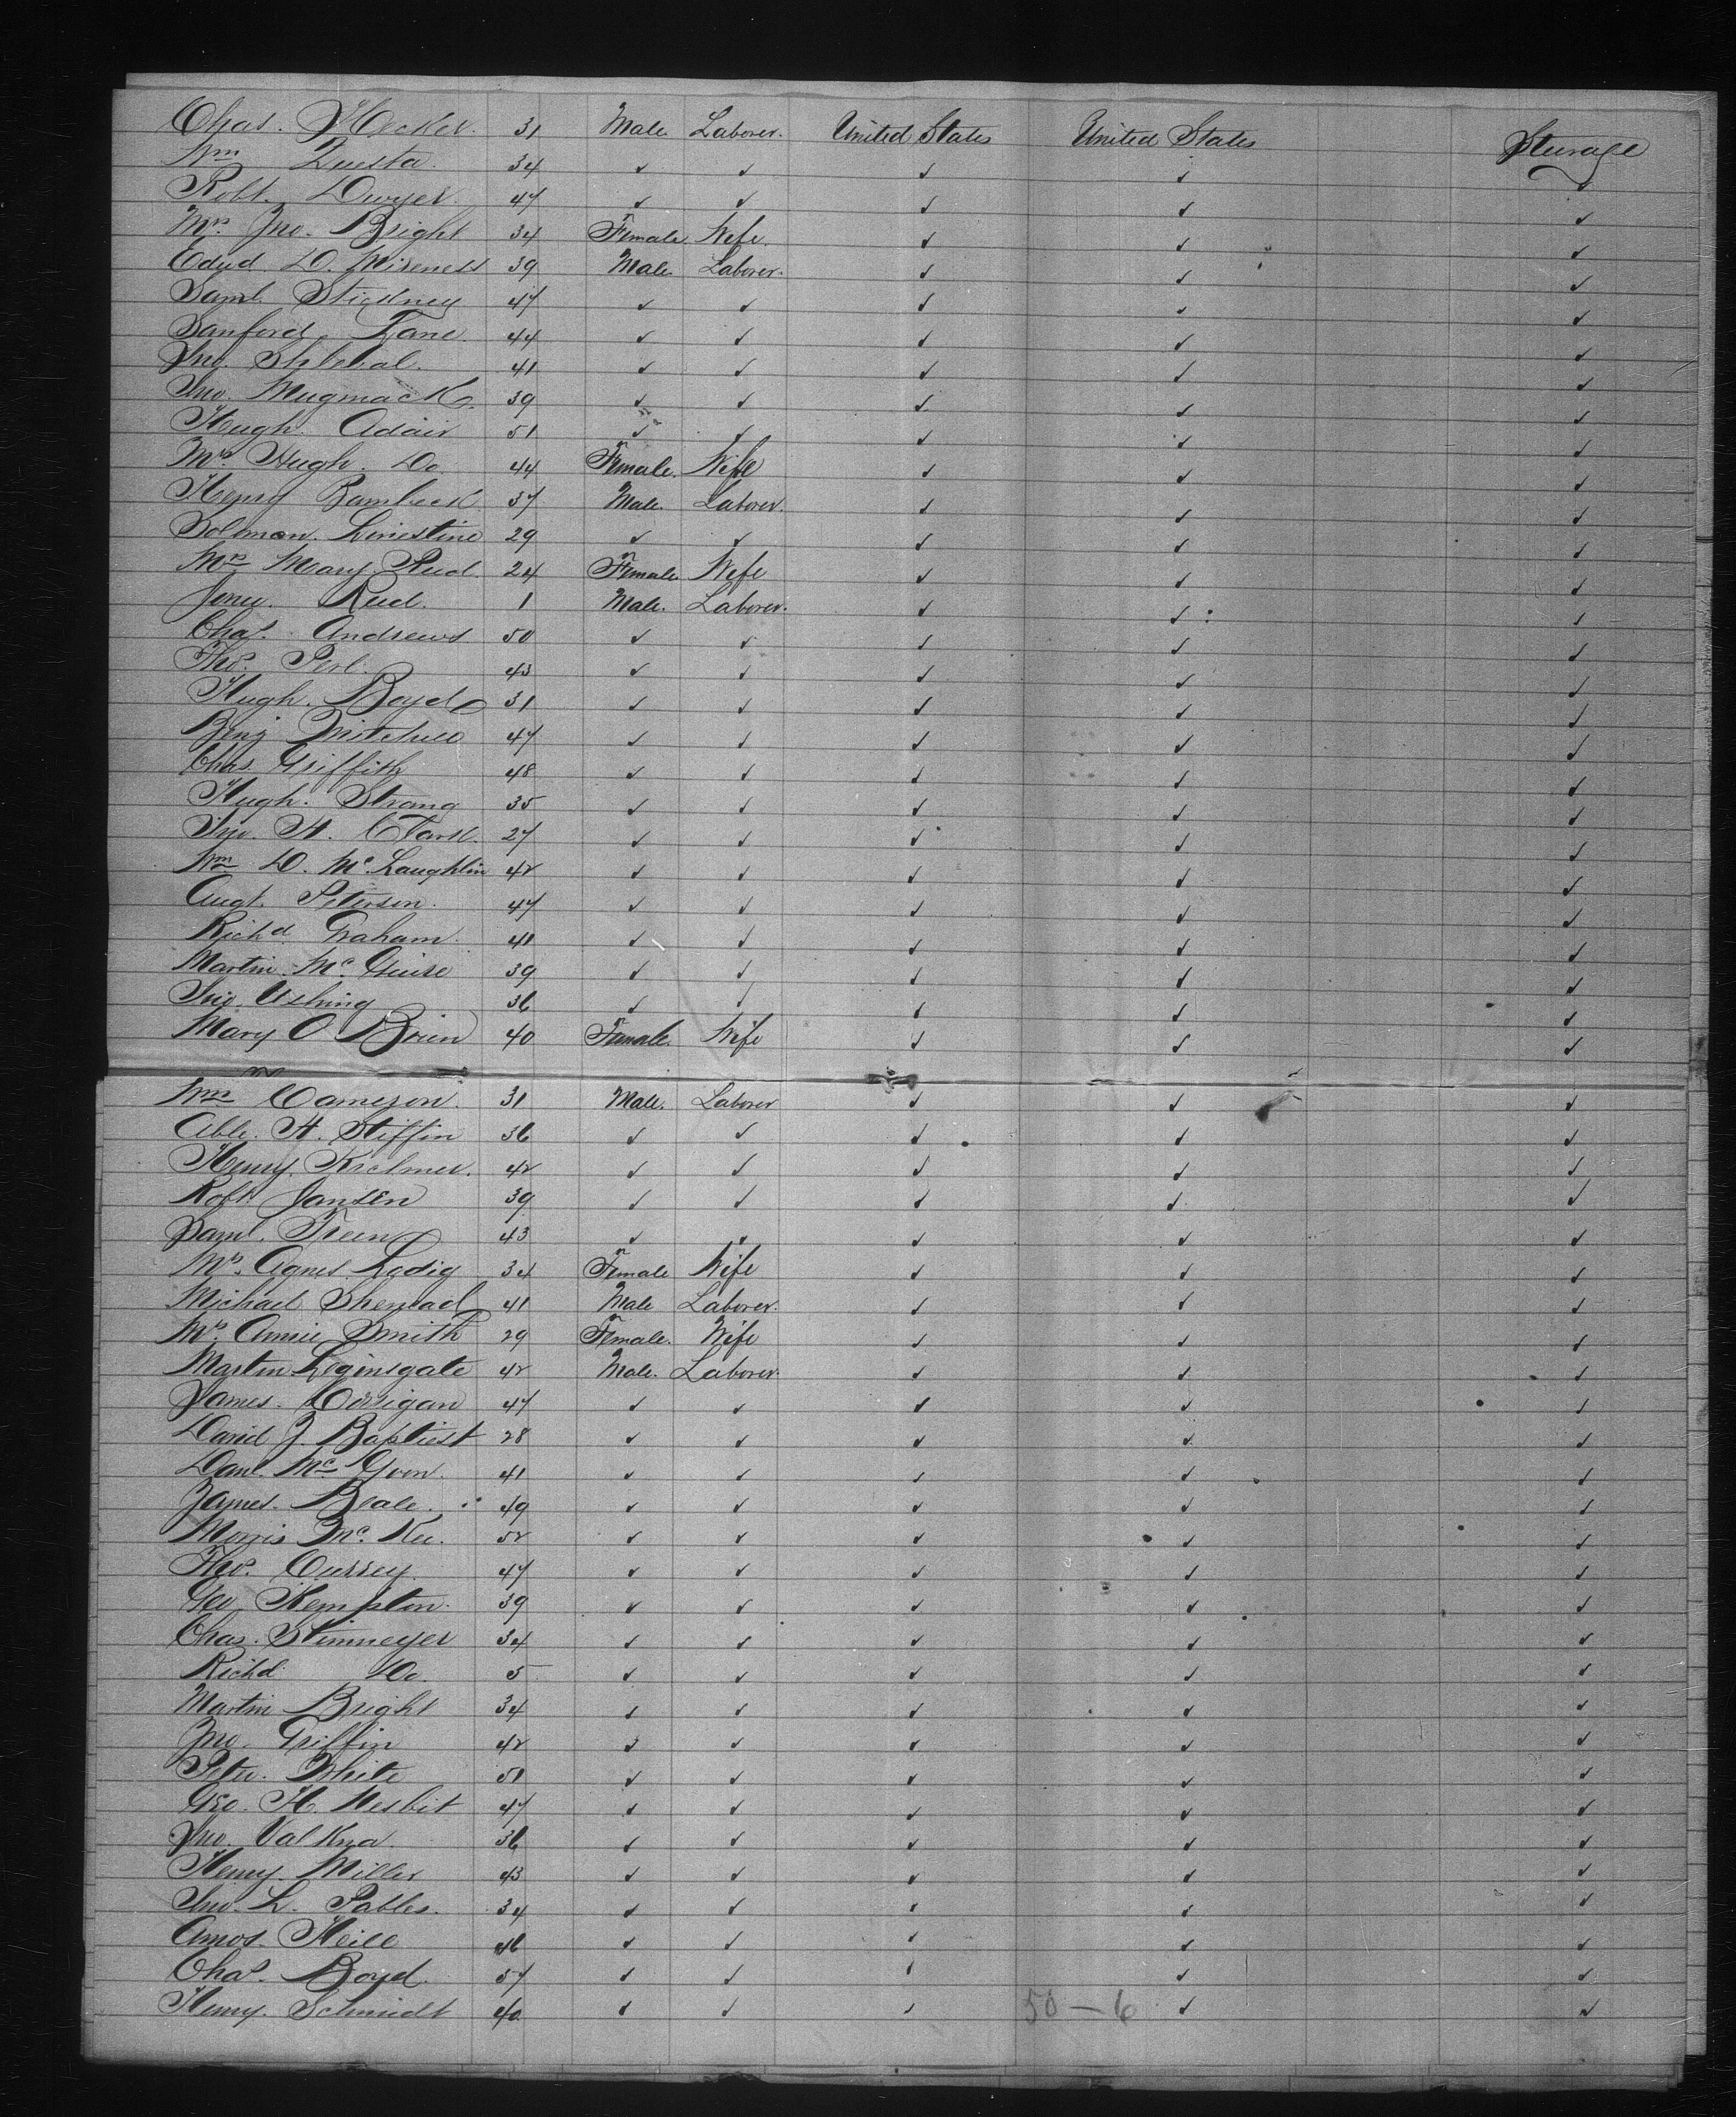 Chas. Hecker. 31 Male Laborer. United States United States Steerage
Wm Questa. 34 ✓ ✓ ✓ ✓ ✓
Robt. Dwyer. 47 ✓ ✓ ✓ ✓ ✓
Mrs. Jno. Bright 34 Female Wife. ✓ ✓ ✓
D. 39 Male Laborer. ✓ ✓ ✓
Saml. Stickney 47 ✓ ✓ ✓ ✓ ✓
Sanford Lane. 44 ✓ ✓ ✓ ✓ ✓
Jno. 41 ✓ ✓ ✓ ✓ ✓
Jno. Mugmack. 39 ✓ ✓ ✓ ✓ ✓
Hugh. Adair 51 ✓ ✓ ✓ ✓ ✓
Mrs Hugh. Do. 44 Female. Wife ✓ ✓ ✓
Henry Bambeck 37 Male. Laborer. ✓ ✓ ✓
Solomon. 29 ✓ ✓ ✓ ✓ ✓
Mrs Mary Reed. 24 Female Wife ✓ ✓ ✓
Reed. 1 Male. Laborer. ✓ ✓ ✓
Chas. Andrews 50 ✓ ✓ ✓ ✓ ✓
Thos. Perl. 43 ✓ ✓ ✓ ✓ ✓
Hugh. Boyd 31 ✓ ✓ ✓ ✓ ✓
Benj 47 ✓ ✓ ✓ ✓ ✓
Chas. Griffith 48 ✓ ✓ ✓ ✓ ✓
Hugh. Strang 35 ✓ ✓ ✓ ✓ ✓
Jno. H. Clark. 27 ✓ ✓ ✓ ✓ ✓
Wm D. Mc. Laughlin 42 ✓ ✓ ✓ ✓ ✓
Augt. Peterson. 47 ✓ ✓ ✓ ✓ ✓
Richd. Graham. 41 ✓ ✓ ✓ ✓ ✓
Martin. Mc. Guire 39 ✓ ✓ ✓ ✓ ✓
Jno. Ushing 36 ✓ ✓ ✓ ✓ ✓
Mary O Brien 40 Female. Wife ✓ ✓ ✓
Wm Cameron. 31 Male. Laborer ✓ ✓ ✓
Able. H. Stiffin 36 ✓ ✓ ✓ ✓ ✓
Henry. 42 ✓ ✓ ✓ ✓ ✓
Robt. Jansen 39 ✓ ✓ ✓ ✓ ✓
Saml. 43 ✓ ✓ ✓ ✓ ✓
Mrs. Agnes. Ladig 34 Female Wife ✓ ✓ ✓
Michael 41 Male Laborer. ✓ ✓ ✓
Mrs. Annie Smith 29 Female. Wife ✓ ✓ ✓
Martin Leginsgate 42 Male. Laborer ✓ ✓ ✓
James. Corrigan 47 ✓ ✓ ✓ ✓ ✓
David J. Baptiest 28 ✓ ✓ ✓ ✓ ✓
Danl. Mc 41 ✓ ✓ ✓ ✓ ✓
James. Beale. 49 ✓ ✓ ✓ ✓ ✓
Morris Mc. Kee. 52 ✓ ✓ ✓ ✓ ✓
Thos. Cursey. 47 ✓ ✓ ✓ ✓ ✓
Geo. Kempton. 39 ✓ ✓ ✓ ✓ ✓
Chas. Stinmeyer 34 ✓ ✓ ✓ ✓ ✓
Richd. Do. 5 ✓ ✓ ✓ ✓ ✓
Martin Bright 34 ✓ ✓ ✓ ✓ ✓
Jno. Griffin 42 ✓ ✓ ✓ ✓ ✓
Peter. White 51 ✓ ✓ ✓ ✓ ✓
Geo. H. Nesbit 47 ✓ ✓ ✓ ✓ ✓
Jno. Valkna. 36 ✓ ✓ ✓ ✓ ✓
Henry. Miller 43 ✓ ✓ ✓ ✓ ✓
Jno. L. Pables. 34 ✓ ✓ ✓ ✓ ✓
Amos. 46 ✓ ✓ ✓ ✓ ✓
Chas. Boyd. 57 ✓ ✓ ✓ ✓ ✓
Henry. Schmidt 40 ✓ ✓ ✓ 50–6 ✓ ✓